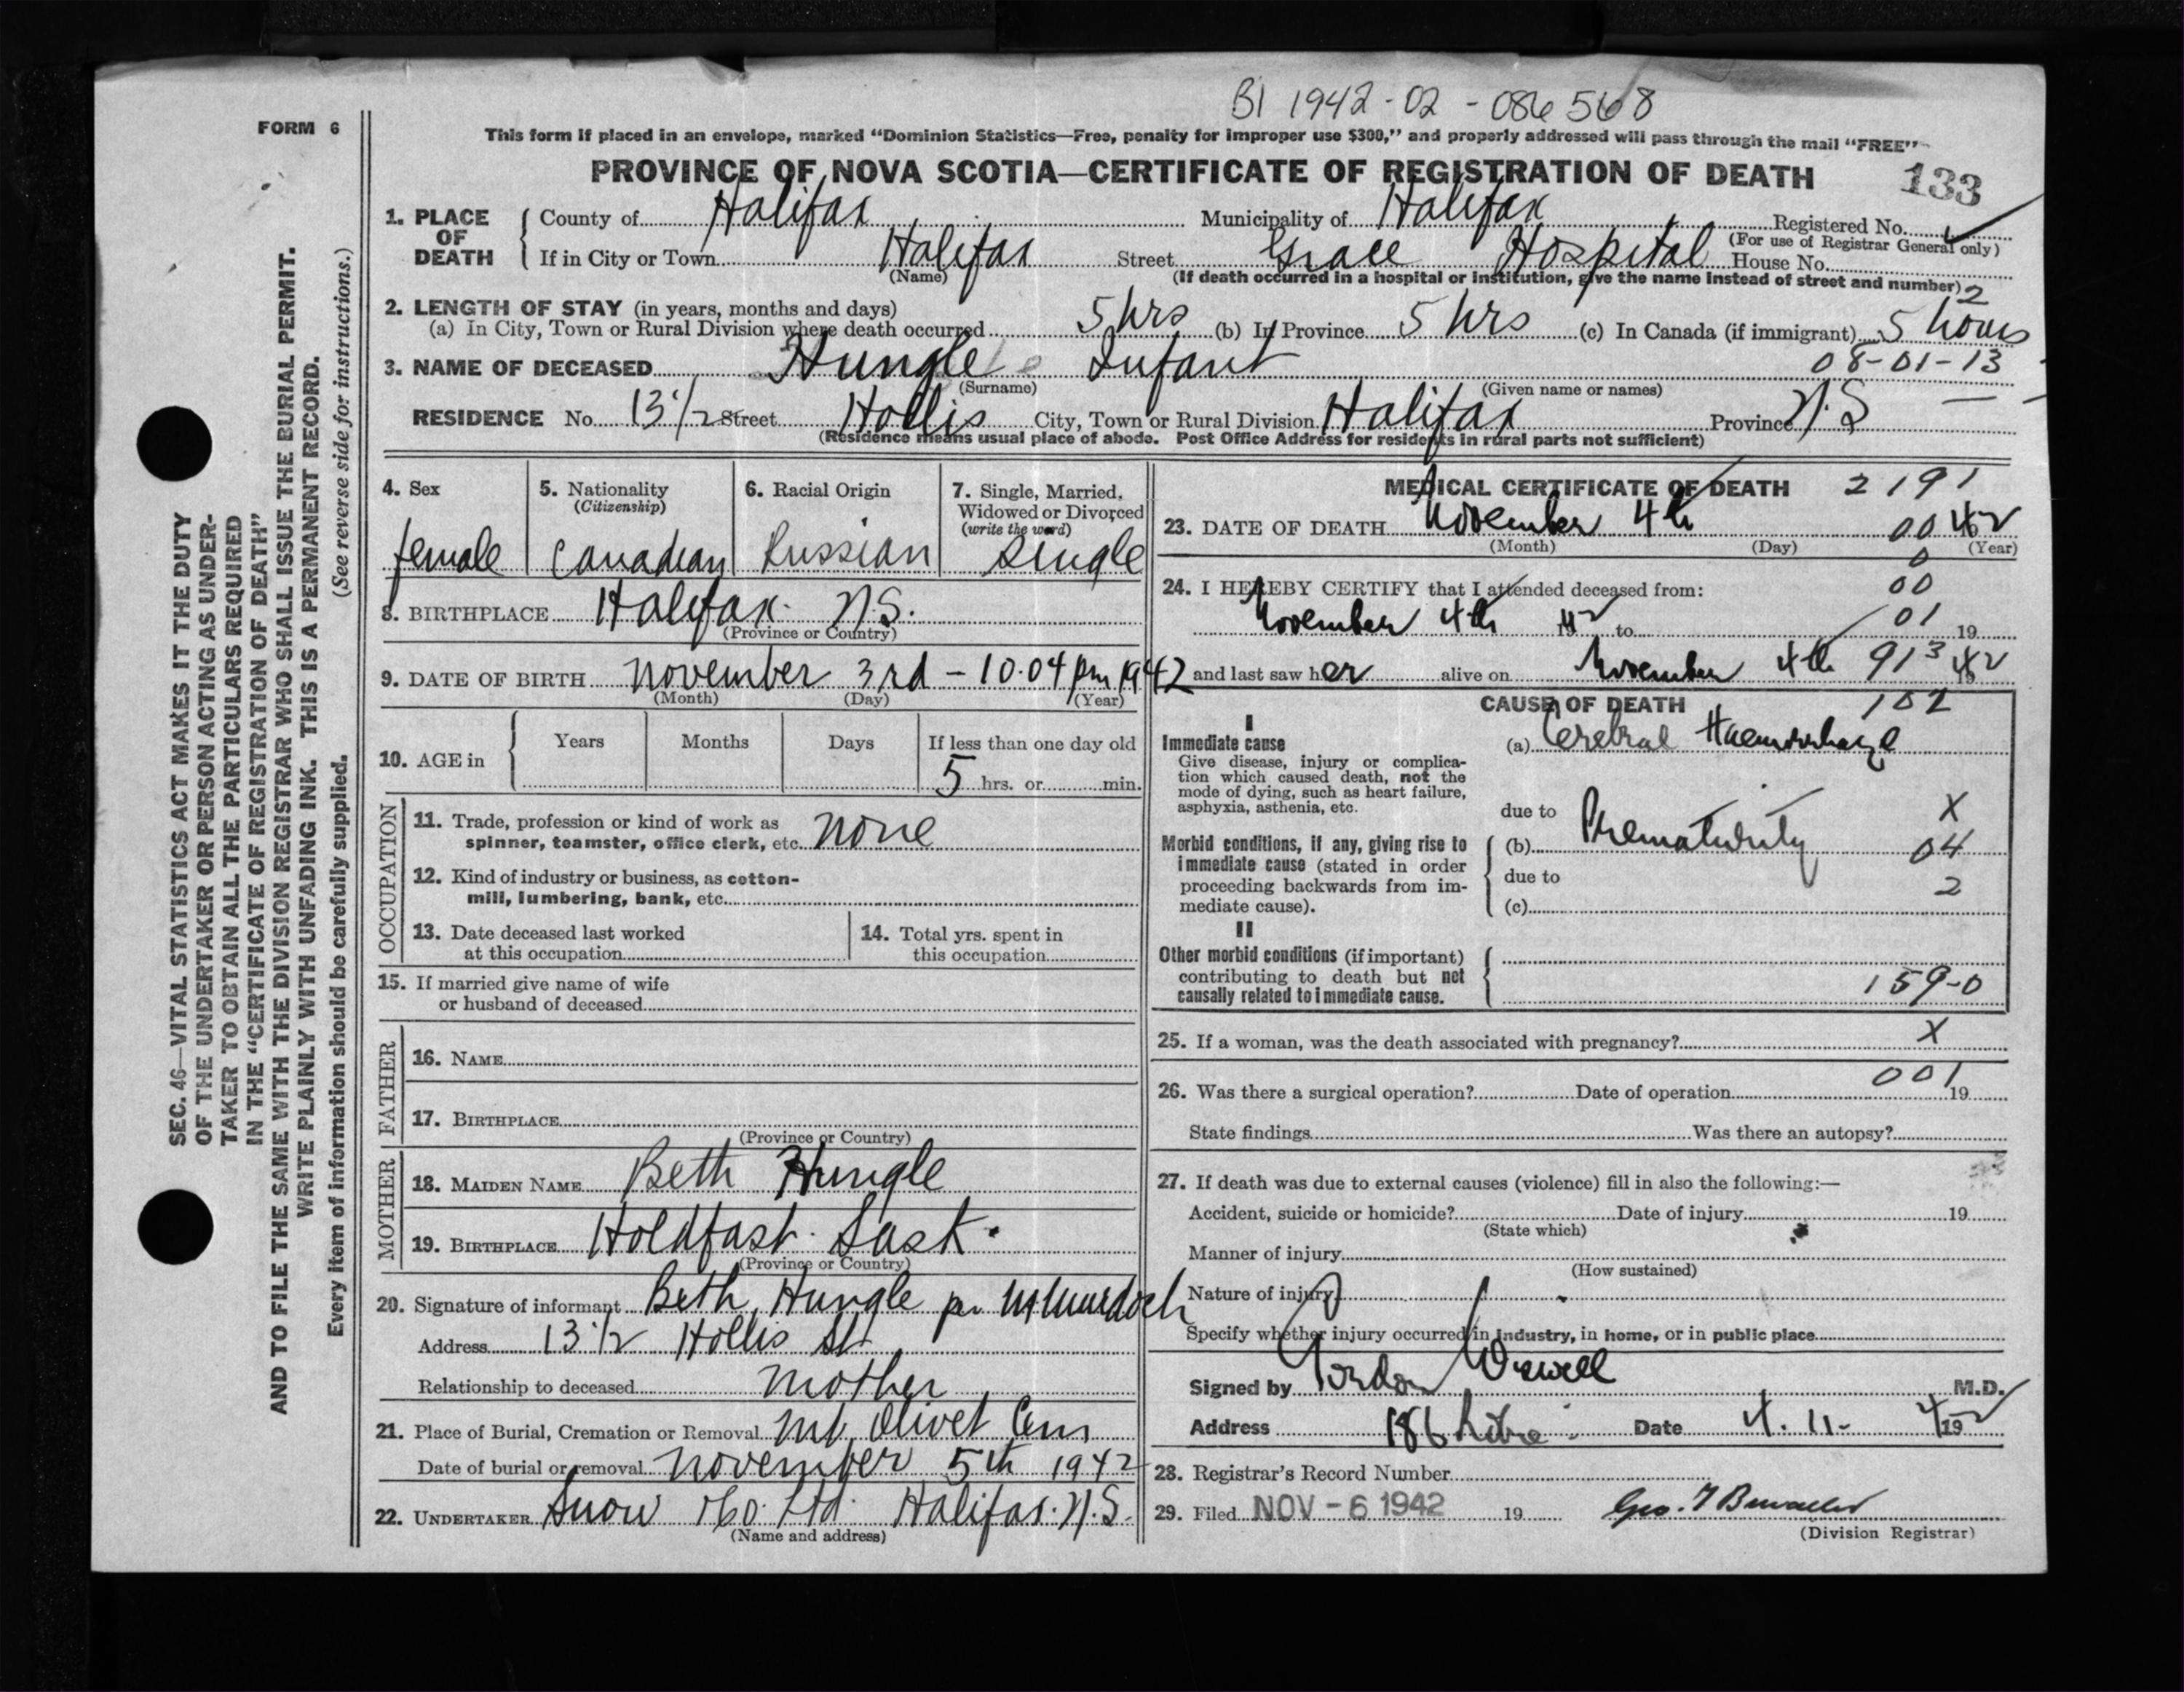 BI 1942-02-086568
FORM 6
This form if placed in an envelope, marked "Dominion Statistics—Free, penalty for improper use $300," and properly addressed will pass through the mail "FREE"
PROVINCE OF NOVA SCOTIA—CERTIFICATE OF REGISTRATION OF DEATH
133
1. PLACE OF DEATH { County of Halifax Municipality of Halifax Registered No.
(For use of Registrar General only)
If in City or Town Halifax Street Grace Hospital House No.
(Name) (If death occurred in a hospital or institution, give the name instead of street and number) 2
2. LENGTH OF STAY (in years, months and days)
(a) In City, Town or Rural Division where death occurred 5 hrs (b) In Province 5 hrs (c) In Canada (if immigrant) 5 hours
3. NAME OF DECEASED Hungle Infant 08-01-13
(Surname) (Given name or names)
RESIDENCE No. 13 1/2 Street Hollis City, Town or Rural Division Halifax Province N.S
(Residence means usual place of abode. Post Office Address for residents in rural parts not sufficient)
4. Sex
female
5. Nationality
(Citizenship)
Canadian
6. Racial Origin
Russian
7. Single, Married, Widowed or Divorced
(write the word)
Single
8. BIRTHPLACE Halifax. N.S.
(Province or Country)
9. DATE OF BIRTH November 3rd - 10.04 pm 1942
(Month) (Day) (Year)
10. AGE in { Years Months Days If less than one day old
5 hrs. or min.
OCCUPATION
11. Trade, profession or kind of work as
spinner, teamster, office clerk, etc. none
12. Kind of industry or business, as cotton-
mill, lumbering, bank, etc.
13. Date deceased last worked
at this occupation
14. Total yrs. spent in
this occupation
15. If married give name of wife
or husband of deceased
FATHER
16. NAME
17. BIRTHPLACE
(Province or Country)
MOTHER
18. MAIDEN NAME Beth Hungle
19. BIRTHPLACE Holdfast. Sask.
(Province or Country)
20. Signature of informant Beth Hungle per M Murdoch
Address 13 1/2 Hollis St
Relationship to deceased mother
21. Place of Burial, Cremation or Removal Mt. Olivet Cem
Date of burial or removal November 5th 1942
22. UNDERTAKER Snow & Co. Ltd. Halifax. N.S.
(Name and address)
MEDICAL CERTIFICATE OF DEATH 2191
23. DATE OF DEATH November 4th 00 1942
(Month) (Day) (Year)
0
24. I HEREBY CERTIFY that I attended deceased from: 00
November 4th 1942 to 01 19
and last saw her alive on November 4th 913 1942
CAUSE OF DEATH 102
I
Immediate cause
Give disease, injury or complica-
tion which caused death, not the
mode of dying, such as heart failure,
asphyxia, asthenia, etc.
(a) Cerebral Haemorrhage
due to X
Morbid conditions, if any, giving rise to
immediate cause (stated in order
proceeding backwards from im-
mediate cause).
(b) Prematurity 04
due to 2
(c)
II
Other morbid conditions (if important)
contributing to death but not
causally related to immediate cause.
159-0
25. If a woman, was the death associated with pregnancy? X
001
26. Was there a surgical operation? Date of operation 19
State findings Was there an autopsy?
27. If death was due to external causes (violence) fill in also the following:—
Accident, suicide or homicide? Date of injury 19
(State which)
Manner of injury
(How sustained)
Nature of injury
Specify whether injury occurred in industry, in home, or in public place
Signed by Gordon Wiswell M.D.
Address 186 Date 4.11. 1942
28. Registrar's Record Number
29. Filed NOV - 6 1942 19 Geo. 
(Division Registrar)
SEC. 46—VITAL STATISTICS ACT MAKES IT THE DUTY
OF THE UNDERTAKER OR PERSON ACTING AS UNDER-
TAKER TO OBTAIN ALL THE PARTICULARS REQUIRED
IN THE "CERTIFICATE OF REGISTRATION OF DEATH"
AND TO FILE THE SAME WITH THE DIVISION REGISTRAR WHO SHALL ISSUE THE BURIAL PERMIT.
WRITE PLAINLY WITH UNFADING INK. THIS IS A PERMANENT RECORD.
Every item of information should be carefully supplied. (See reverse side for instructions.)